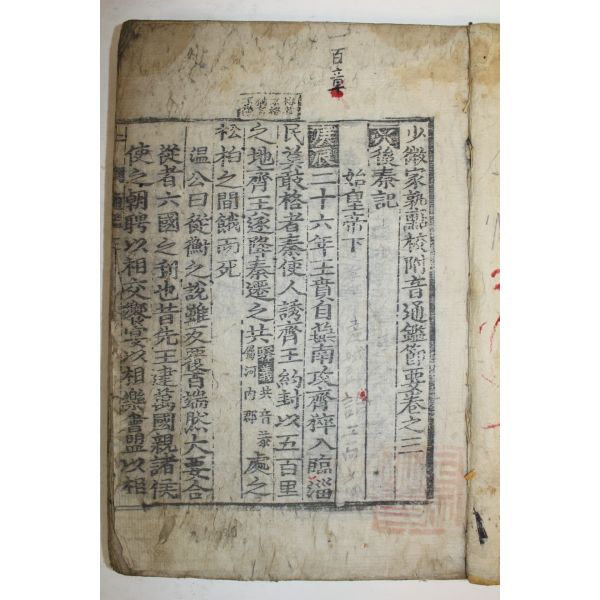 一百章
少微家塾點校附音通鑑節要卷之三
後秦記
始皇帝下
庚辰二十六年王賁自燕南攻齊猝入臨淄
民莫敢格者秦使人誘齊王約封以五百里
之地齊王遂降秦遷之共共音恭屬河內郡處之
松柏之間餓而死
溫公曰從衡之說雖反覆百端然大要合
從者六國之利也昔先王建萬國親諸侯
使之朝聘以相交饗宴以相樂會盟以相